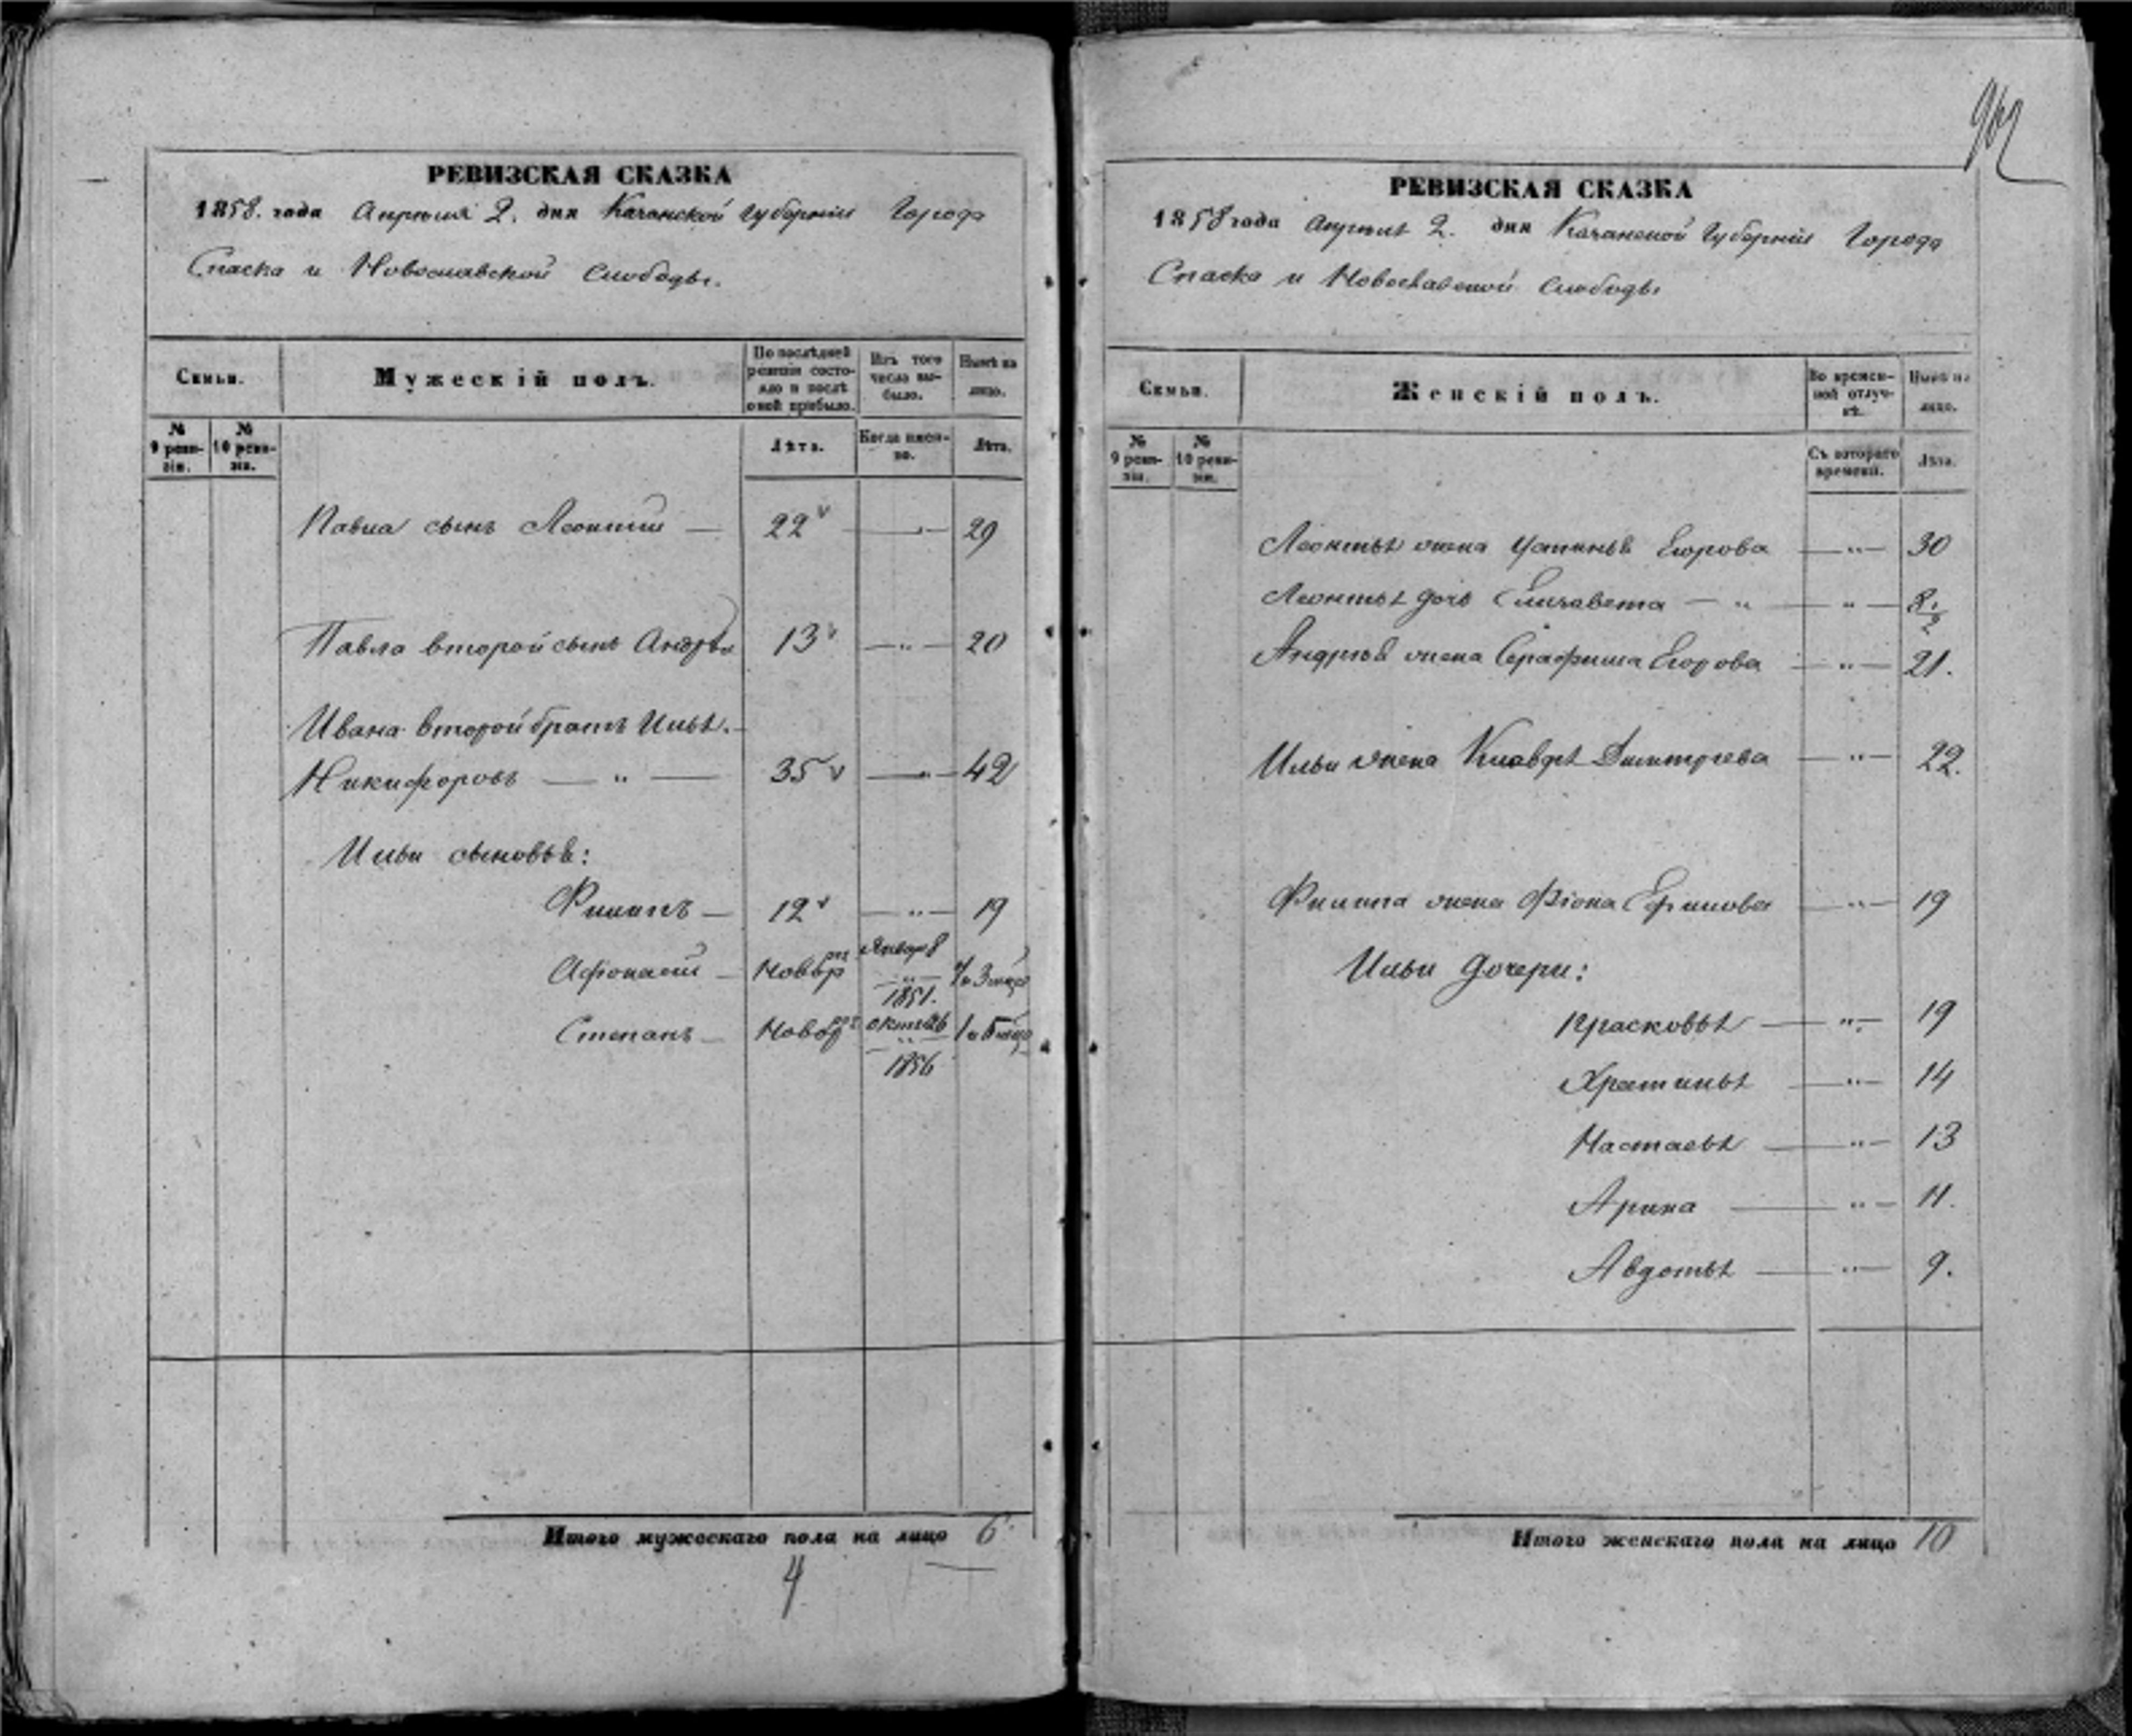 РЕВИЗСКАЯ СКАЗКА
1858. года Апрѣля 2. дня Казанской Губерніи Города
Спаска и Новоспавской Слободы.
Семьи.
Мужескій полъ.
По послѣдней ревизіи состояло и послѣ оной прибыло.
Изъ того числа выбыло.
Нынѣ на лицо.
№ 9 ревизіи.
№ 10 ревизіи.
Лѣта.
Когда именно.
Лѣта.
Павла сынъ Леонтій — 22 — 29
Павла второй сынъ Андрѣй 13 — „ — 20
Ивана второй братъ Илья.
Никифоровъ — „ — 35 — „ — 42
Ильи сыновья:
Филипъ — 12 — „ — 19
Афонасій — Новор Январ 1851.
Степанъ — Новор 1856
Итого мужескаго пола на лицо 6.
4
962
РЕВИЗСКАЯ СКАЗКА
1858 года Апрѣля 2. дня Казанской Губерніи Города
Спаска и Слободы
Семьи.
Женскій полъ.
Во временной отлучкѣ.
Нынѣ на лицо.
№ 9 ревизіи.
№ 10 ревизіи.
Съ котораго времени.
Лѣта.
Леонтья жена Устинья Егорова — „ — 30
Леонтья дочь Елизавета — „ — „ — 8 ½
Андрея жена Серафима Егорова — „ — 21.
Ильи жена Клавдя Дмитрева — „ — 22.
Филипа жена Фіона Ефимова — „ — 19
Ильи дочери:
Прасковья — „ — 19
Хрестинья — „ — 14
Настасья — „ — 13
Арина — „ — 11.
Авдотья — „ — 9.
Итого женскаго пола на лицо 10